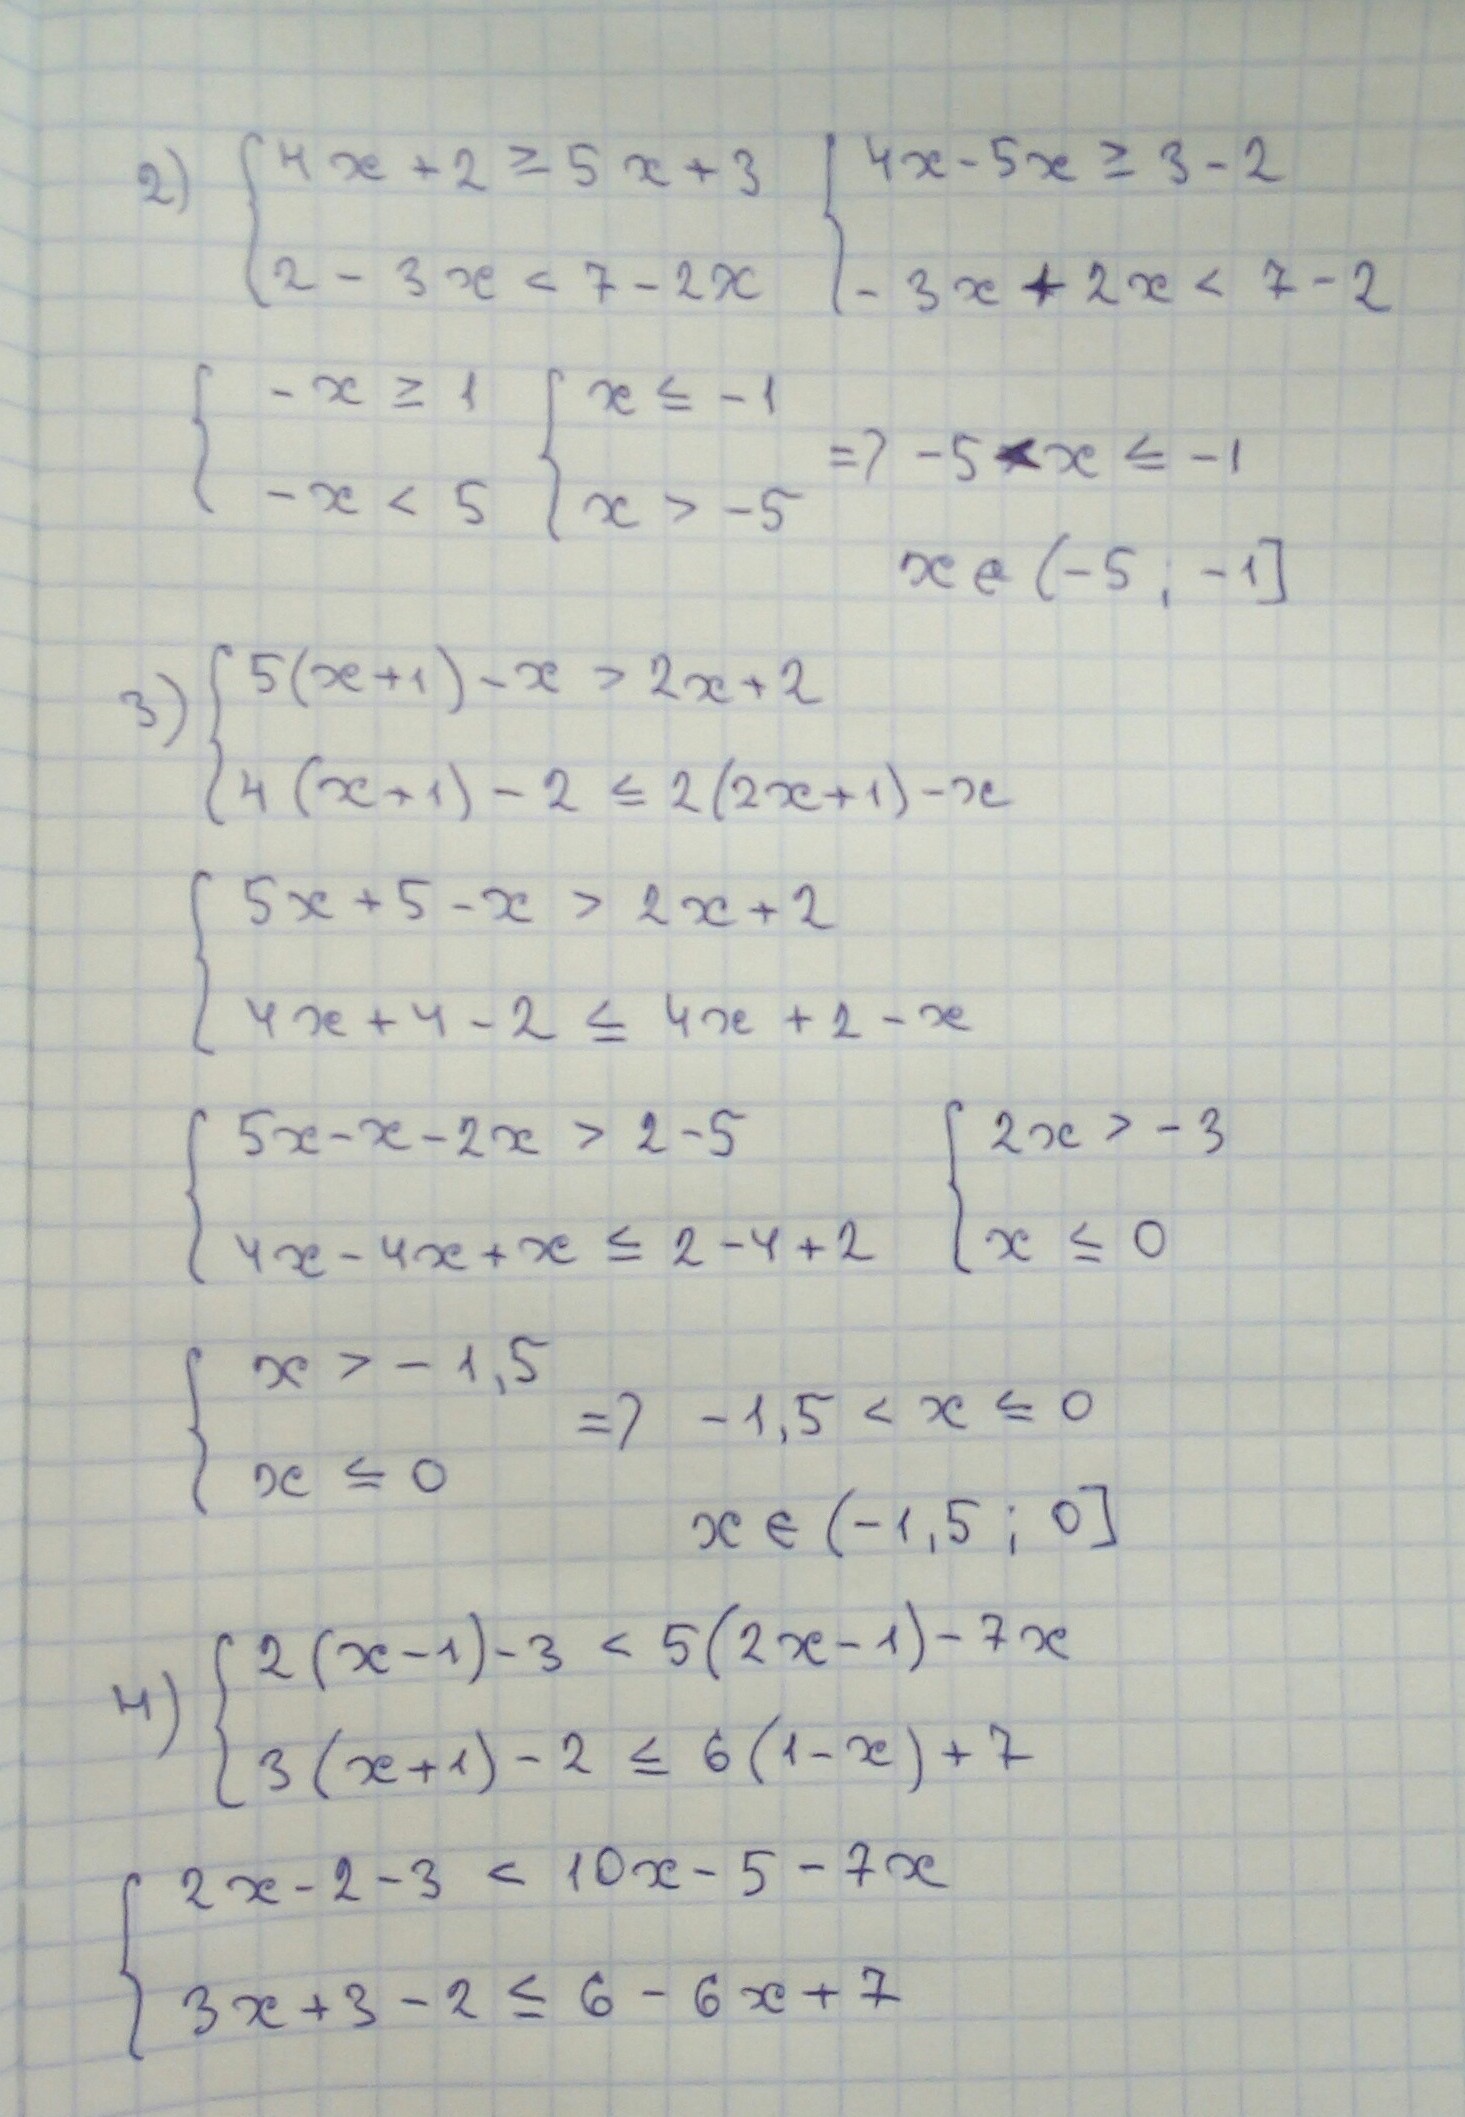 2) { 4x + 2 ≥ 5x + 3 { 4x - 5x ≥ 3 - 2
2 - 3x < 7 - 2x - 3x + 2x < 7 - 2
{ -x ≥ 1 { x ≤ -1
-x < 5 x > -5 => -5 < x ≤ -1
x ∈ (-5 ; -1]
3) { 5(x+1) - x > 2x + 2
4(x+1) - 2 ≤ 2(2x+1) - x
{ 5x + 5 - x > 2x + 2
4x + 4 - 2 ≤ 4x + 2 - x
{ 5x - x - 2x > 2 - 5 { 2x > -3
4x - 4x + x ≤ 2 - 4 + 2 x ≤ 0
{ x > -1,5
x ≤ 0 => -1,5 < x ≤ 0
x ∈ (-1,5 ; 0]
4) { 2(x-1) - 3 < 5(2x-1) - 7x
3(x+1) - 2 ≤ 6(1-x) + 7
{ 2x - 2 - 3 < 10x - 5 - 7x
3x + 3 - 2 ≤ 6 - 6x + 7